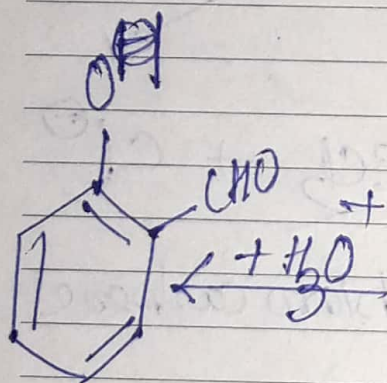 OH
CHO
+
+ H3O